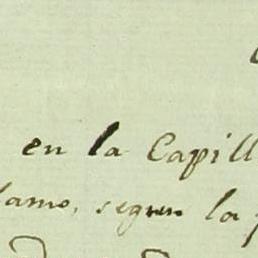 en la Capill
lamo, segun la